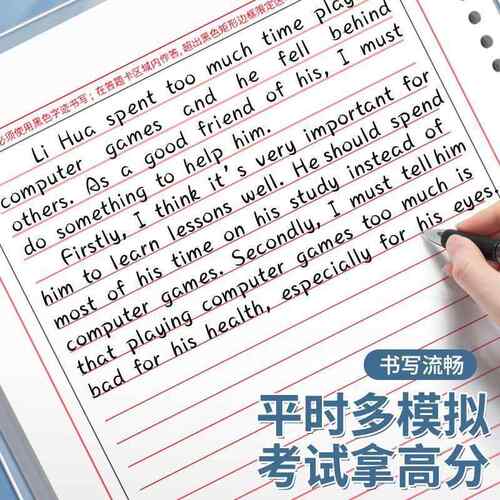 必须使用黑色字迹书写；在答题卡区域内作答，超出黑色矩形边框限定区
Li Hua spent too much time play
computer games and he fell behind
others. As a good friend of his, I must
do something to help him.
Firstly, I think it's very important for
him to learn lessons well. He should spend
most of his time on his study instead of
computer games. Secondly, I must tell him
that playing computer games too much is
bad for his health, especially for his eyes
书写流畅
平时多模拟
考试拿高分